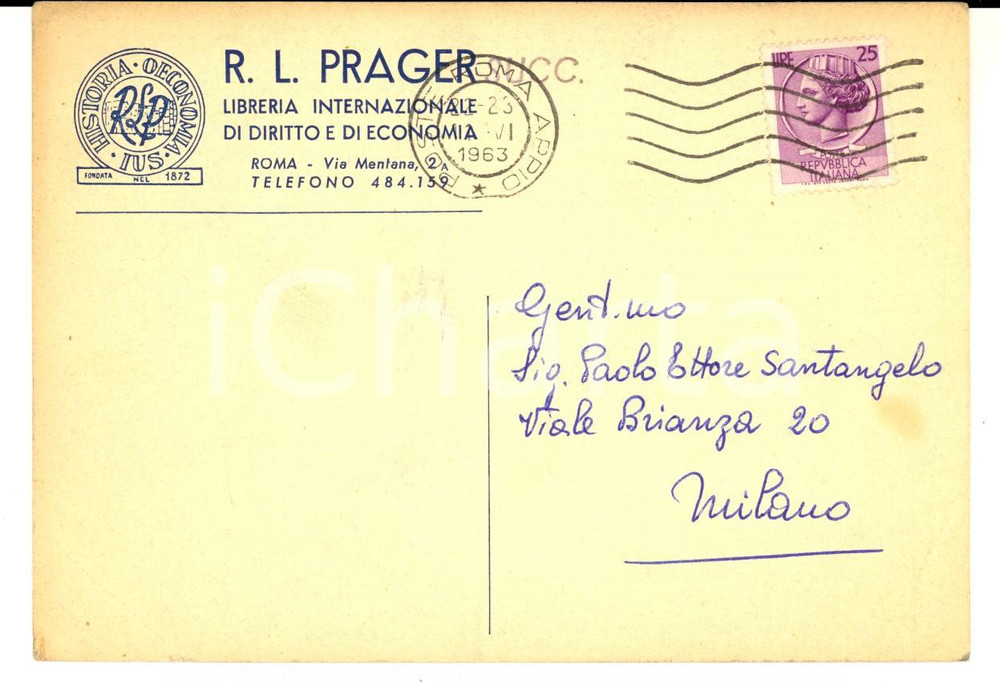 HISTORIA · OECONOMIA · IUS ·
RLP
FONDATA NEL 1872
R. L. PRAGER SUCC.
LIBRERIA INTERNAZIONALE
DI DIRITTO E DI ECONOMIA
ROMA - Via Mentana, 2A
TELEFONO 484.159
POSTE ROMA APPIO
22-23
VI
1963
LIRE 25
REPVBBLICA
ITALIANA
iCharta
Gent.mo
Sig. Paolo Ettore Santangelo
Viale Brianza 20
Milano